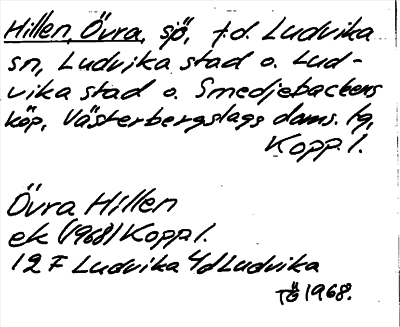 Hillen, Övra, sjö, f.d. Ludvika
sn, Ludvika stad o. Lud-
vika stad o. Smedjebackens
köp, Västerbergslags doms. tg,
Kopp. l.
Övra Hillen
ek (1968) Kopp l.
12 F Ludvika 4/d Ludvika
TÖ 1968.